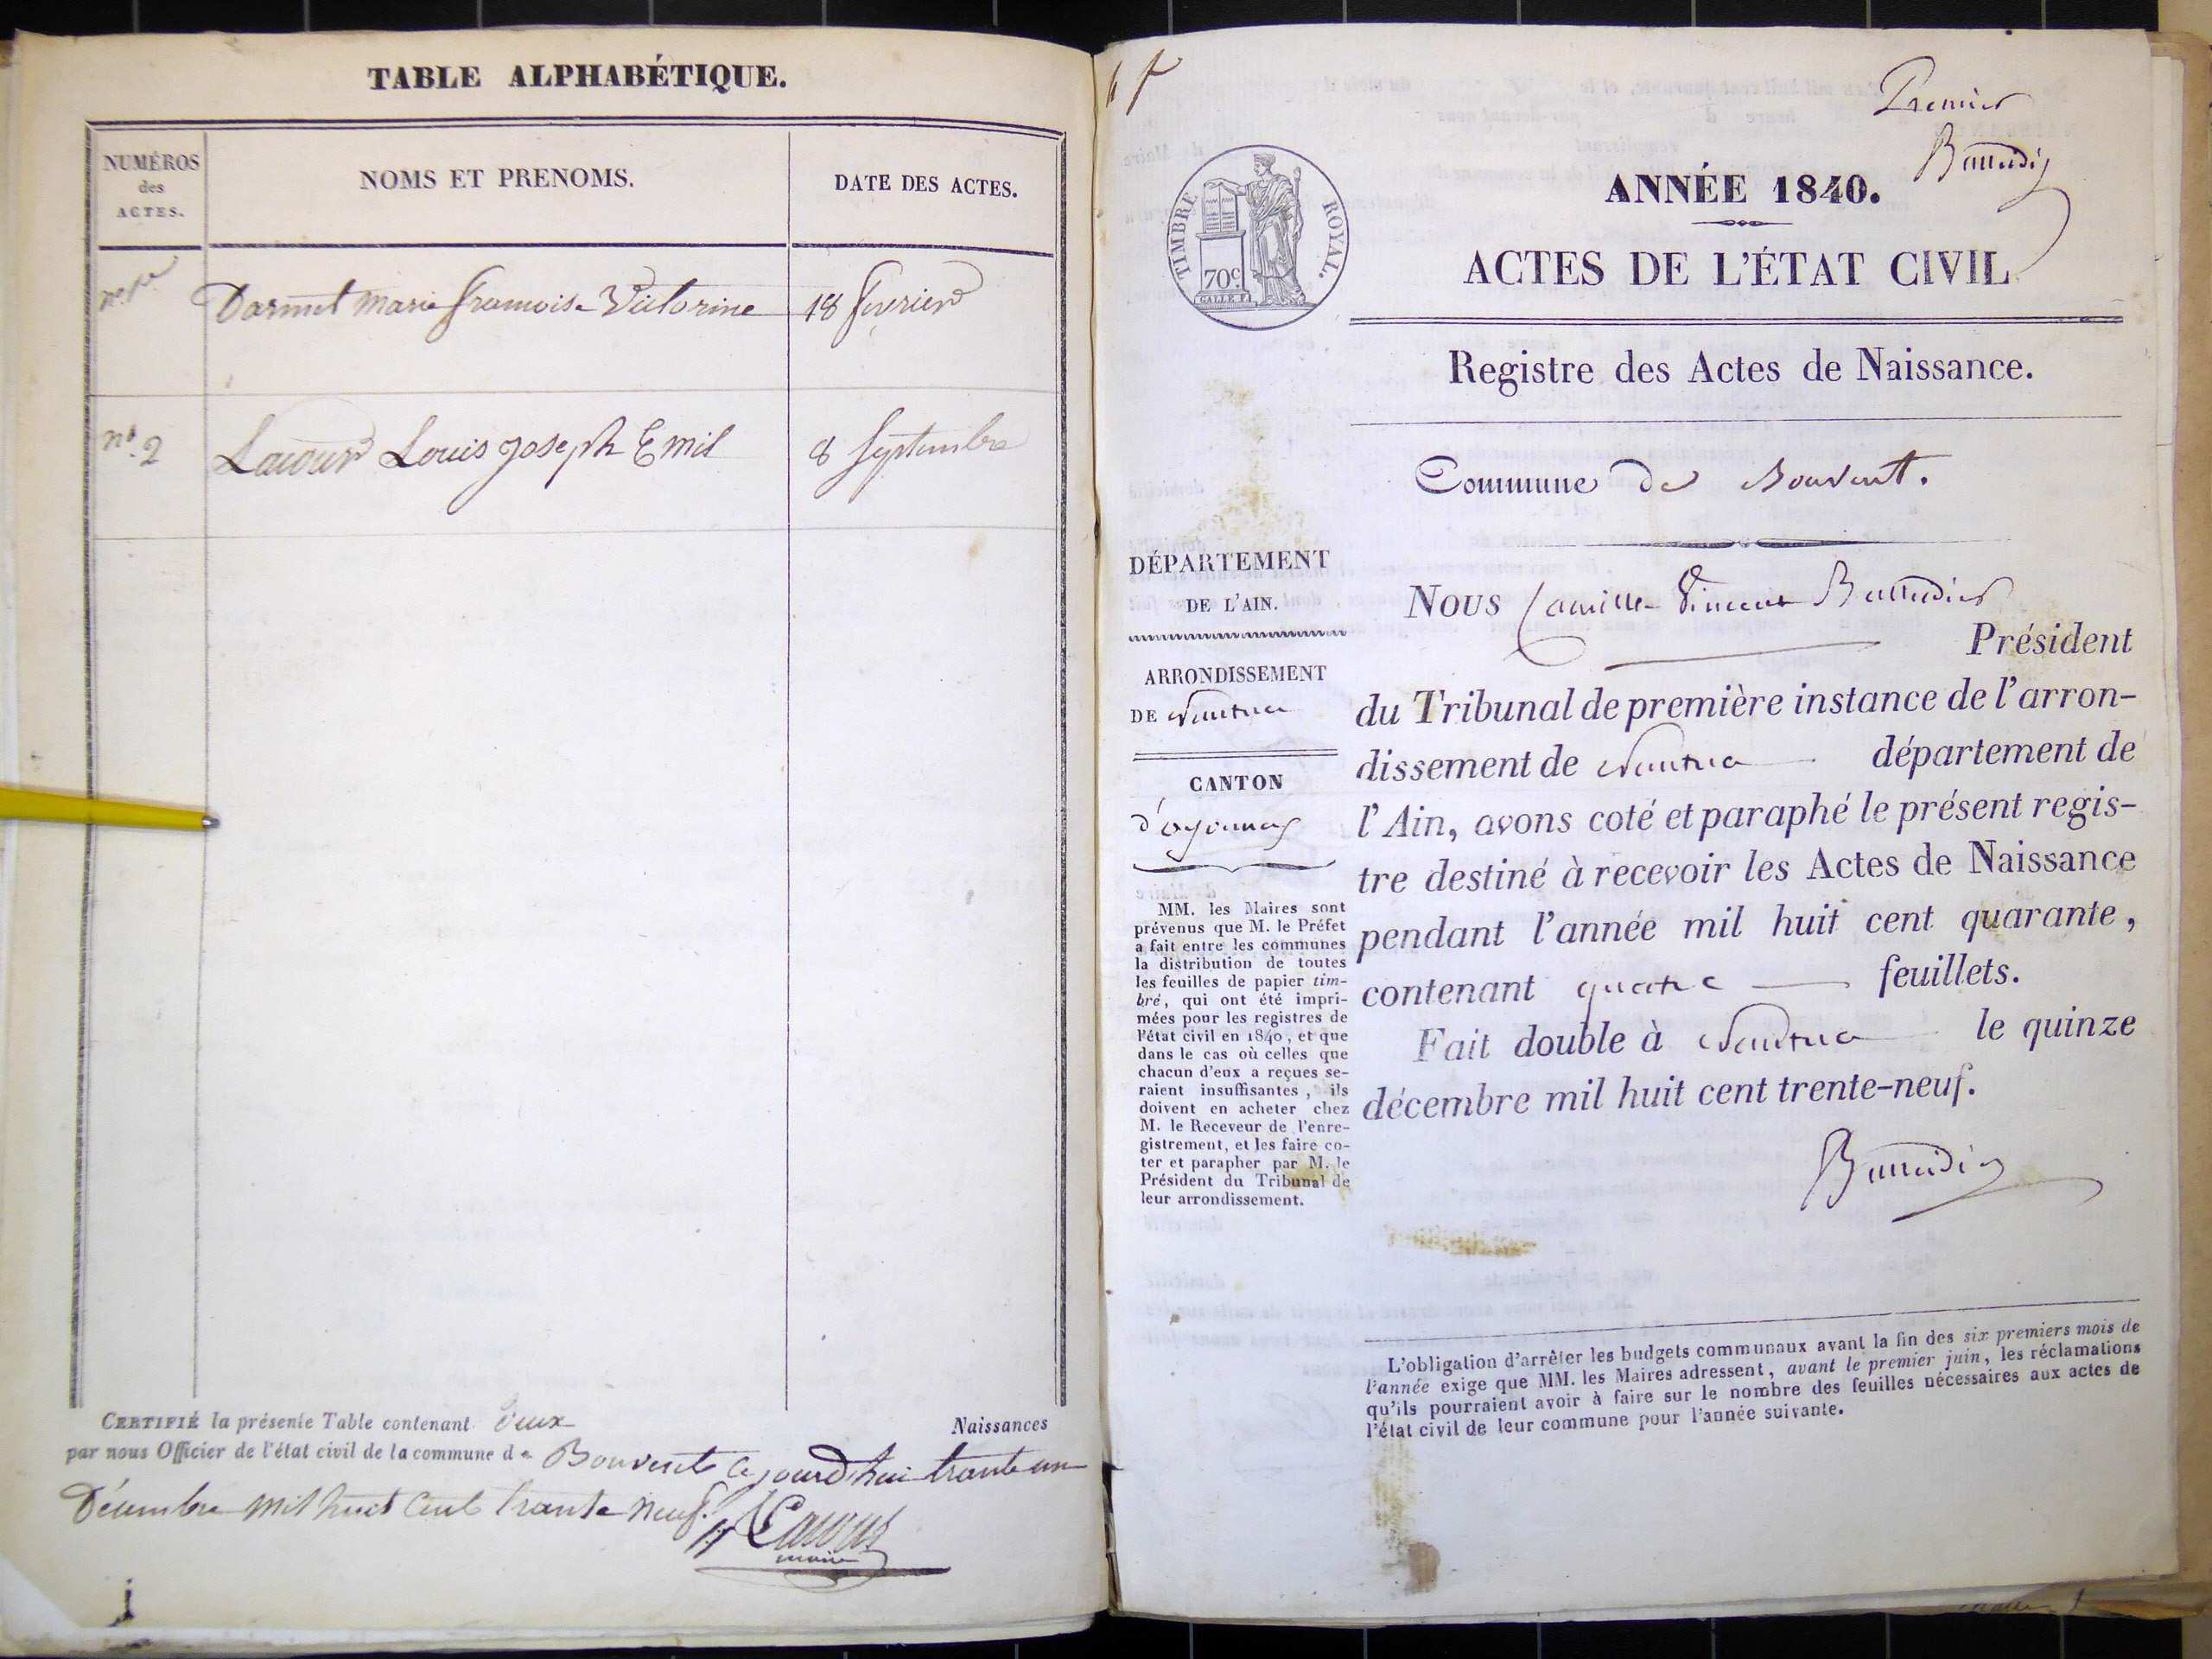 TABLE ALPHABÉTIQUE.
NUMÉROS
des
ACTES.
NOMS ET PRENOMS.
DATE DES ACTES.
nº. 1er
Darmet Marie françoise Victorine
18 fevrier
nº. 2
Lacour Louis joseph Emil
8 Septembre
CERTIFIÉ la présente Table contenant deux Naissances
par nous Officier de l'état civil de la commune de Bouvent ce jourd'hui trante un
Décembre mil huit Cent trante neuf.
Lacour
maire
Premier
ANNÉE 1840.
TIMBRE ROYAL.
70c.
ACTES DE L'ÉTAT CIVIL
Registre des Actes de Naissance.
Commune de Bouvent.
DÉPARTEMENT
DE L'AIN.
ARRONDISSEMENT
DE Nantua
CANTON
d'oyonnax
MM. les Maires sont
prévenus que M. le Préfet
a fait entre les communes
la distribution de toutes
les feuilles de papier tim-
bré, qui ont été impri-
mées pour les registres de
l'état civil en 1840, et que
dans le cas où celles que
chacun d'eux a reçues se-
raient insuffisantes, ils
doivent en acheter chez
M. le Receveur de l'enre-
gistrement, et les faire co-
ter et parapher par M. le
Président du Tribunal de
leur arrondissement.
NOUS Camille Vincent
Président
du Tribunal de première instance de l'arron-
dissement de Nantua département de
l'Ain, avons coté et paraphé le présent regis-
tre destiné à recevoir les Actes de Naissance
pendant l'année mil huit cent quarante,
contenant quatre feuillets.
Fait double à Nantua le quinze
décembre mil huit cent trente-neuf.
L'obligation d'arrêter les budgets communaux avant la fin des six premiers mois de
l'année exige que MM. les Maires adressent, avant le premier juin, les réclamations
qu'ils pourraient avoir à faire sur le nombre des feuilles nécessaires aux actes de
l'état civil de leur commune pour l'année suivante.